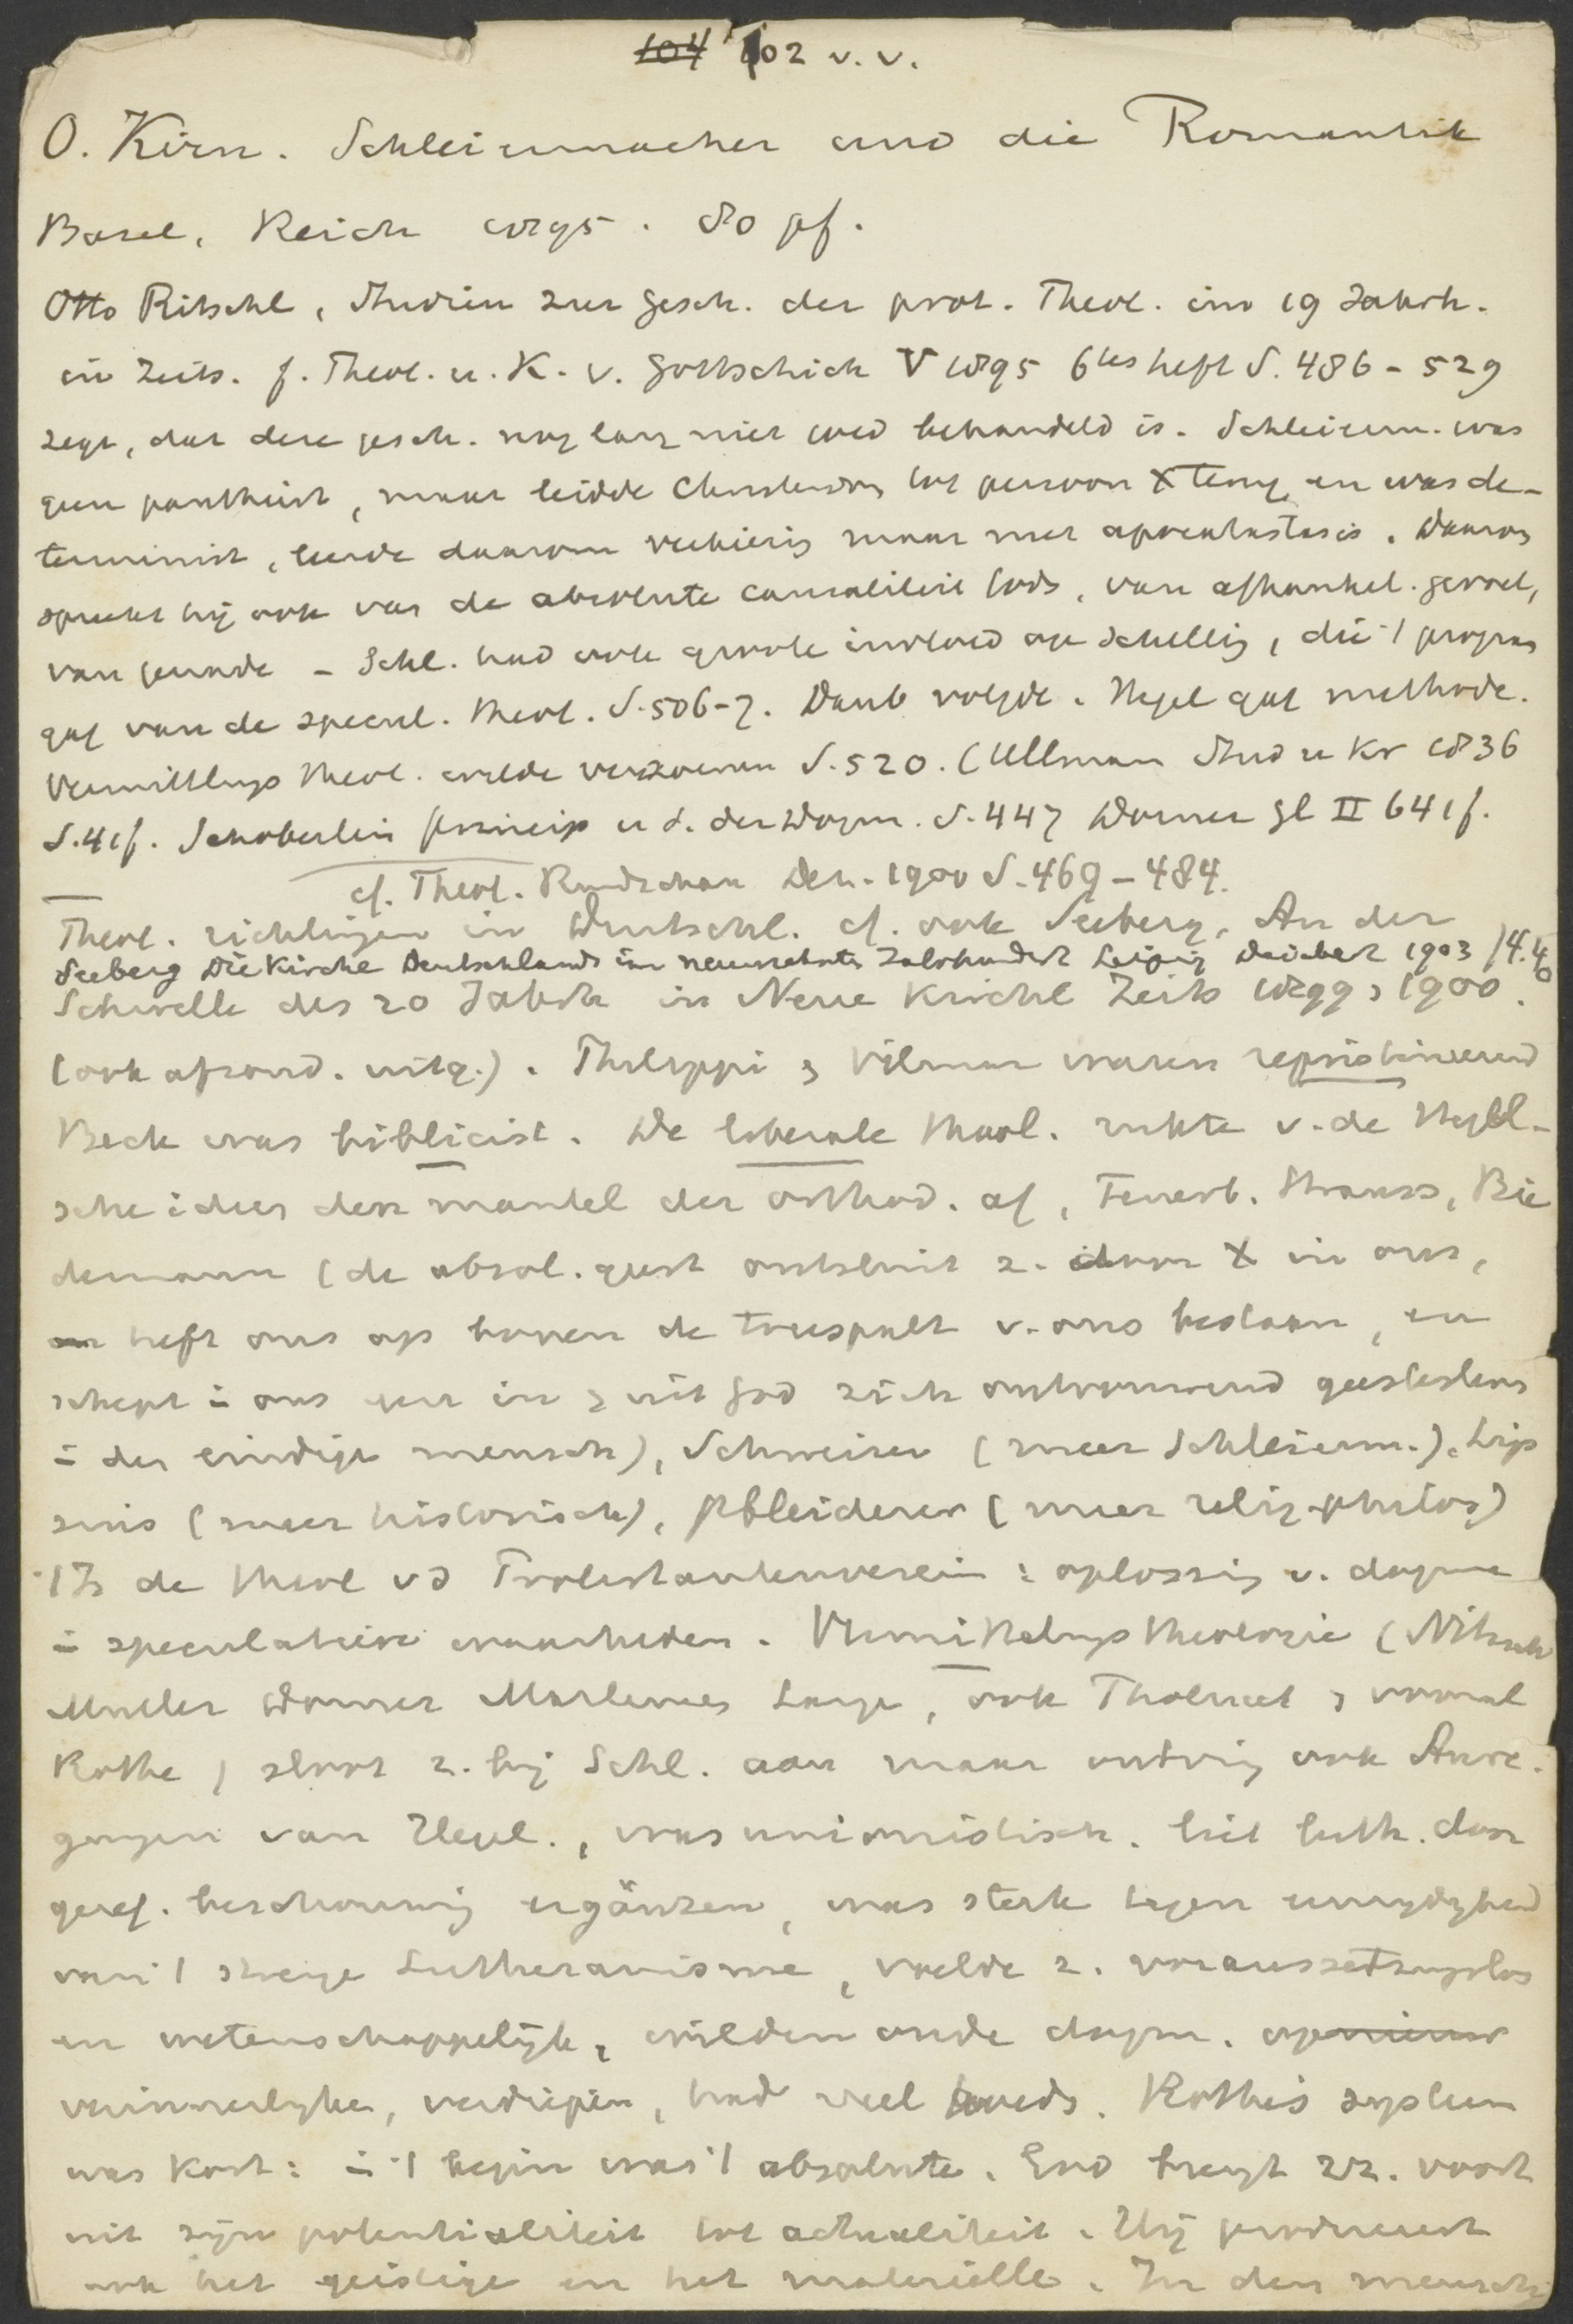 104 102 v. v.
O. Kirn. Schleiermacher und die Romantik
Basel, Reich 1895. 80 pf.
Otto Ritschl, Studien zur Gesch. der prot. Theol. im 19 Jahrh.
in Zeits. f. Theol. u. K. v. Gottschick V 1895 6tes heft S. 486-529
zegt, dat deze gesch. nog lang niet goed behandeld is. Schleierm. was
geen pantheist, maar leidde Christendom tot persoon X terug en was de-
terminist, leerde daarom verkiezing maar met apocatastasis. Daarom
spreekt hij ook van de absolute causaliteit Gods, van afhankel. gevoel,
van genade - Schl. had ook groote invloed op Schelling, die 't program
gaf van de specul. theol. S. 506-7. Daub volgde. Hegel gaf methode.
Vermittlungs theol. wilde verzoenen S. 520. (Ullman Stud u Kr 1836
S. 41f. Schoberlein Princip u S. der Dogm. S. 447 Dorner Gl II 641f.
cf. Theol. Rundschau Dec. 1900 S. 469-484.
Theol. richtingen in Duitschl. cf. ook Seeberg, An der
Seeberg Die Kirche Deutschlands im neunzehnten Jahrhundert Leipzig Deichert 1903 f 4.40
Schwelle des 20 Jahrh in Neue Kirchl Zeits 1899 & 1900.
(ook afzond. uitg.). Philippi & Vilmar waren repristineerend
Beck was biblicist. De liberale theol. rukte v. de Hegel-
sche idees den mantel der orthod. af, Feuerb. Strauss, Bie
demann (de absol. geest ontsluit z. door X in ons,
heft ons op boven de tweespalt v. ons bestaan, en
schept in ons een in & uit God zich ontvouwend geestesleven
in den eindige mensch), Schweizer (meer Schleierm.). Lip
sius (meer historisch), Pfleiderer (meer relig-philos)
't Is de theol vd Protestantenverein: oplossing v. dogma
in speculatieve waarheden. Vermittelungstheologie (Nitzsch
Muller Dorner Martensen Lange, ook Tholuck & vooral
Rothe) sloot z. bij Schl. aan maar ontving ook Anre-
gungen van Hegel., was unionistisch. liet luth. door
geref. beschouwing ergänzen, was sterk tegen
van 't strenge Lutheranisme, voelde z. voraussetzungslos
en wetenschappelijk, wilden oude dogm. opnieuw
verinnerlijken, verdiepen, had veel goeds. Rothe's systeem
was kort: in 't begin was 't absolute. God brengt zz. voort
uit zijn potentialiteit tot actualiteit. Hij produceert
ook het geistige en het materielle. In den mensch